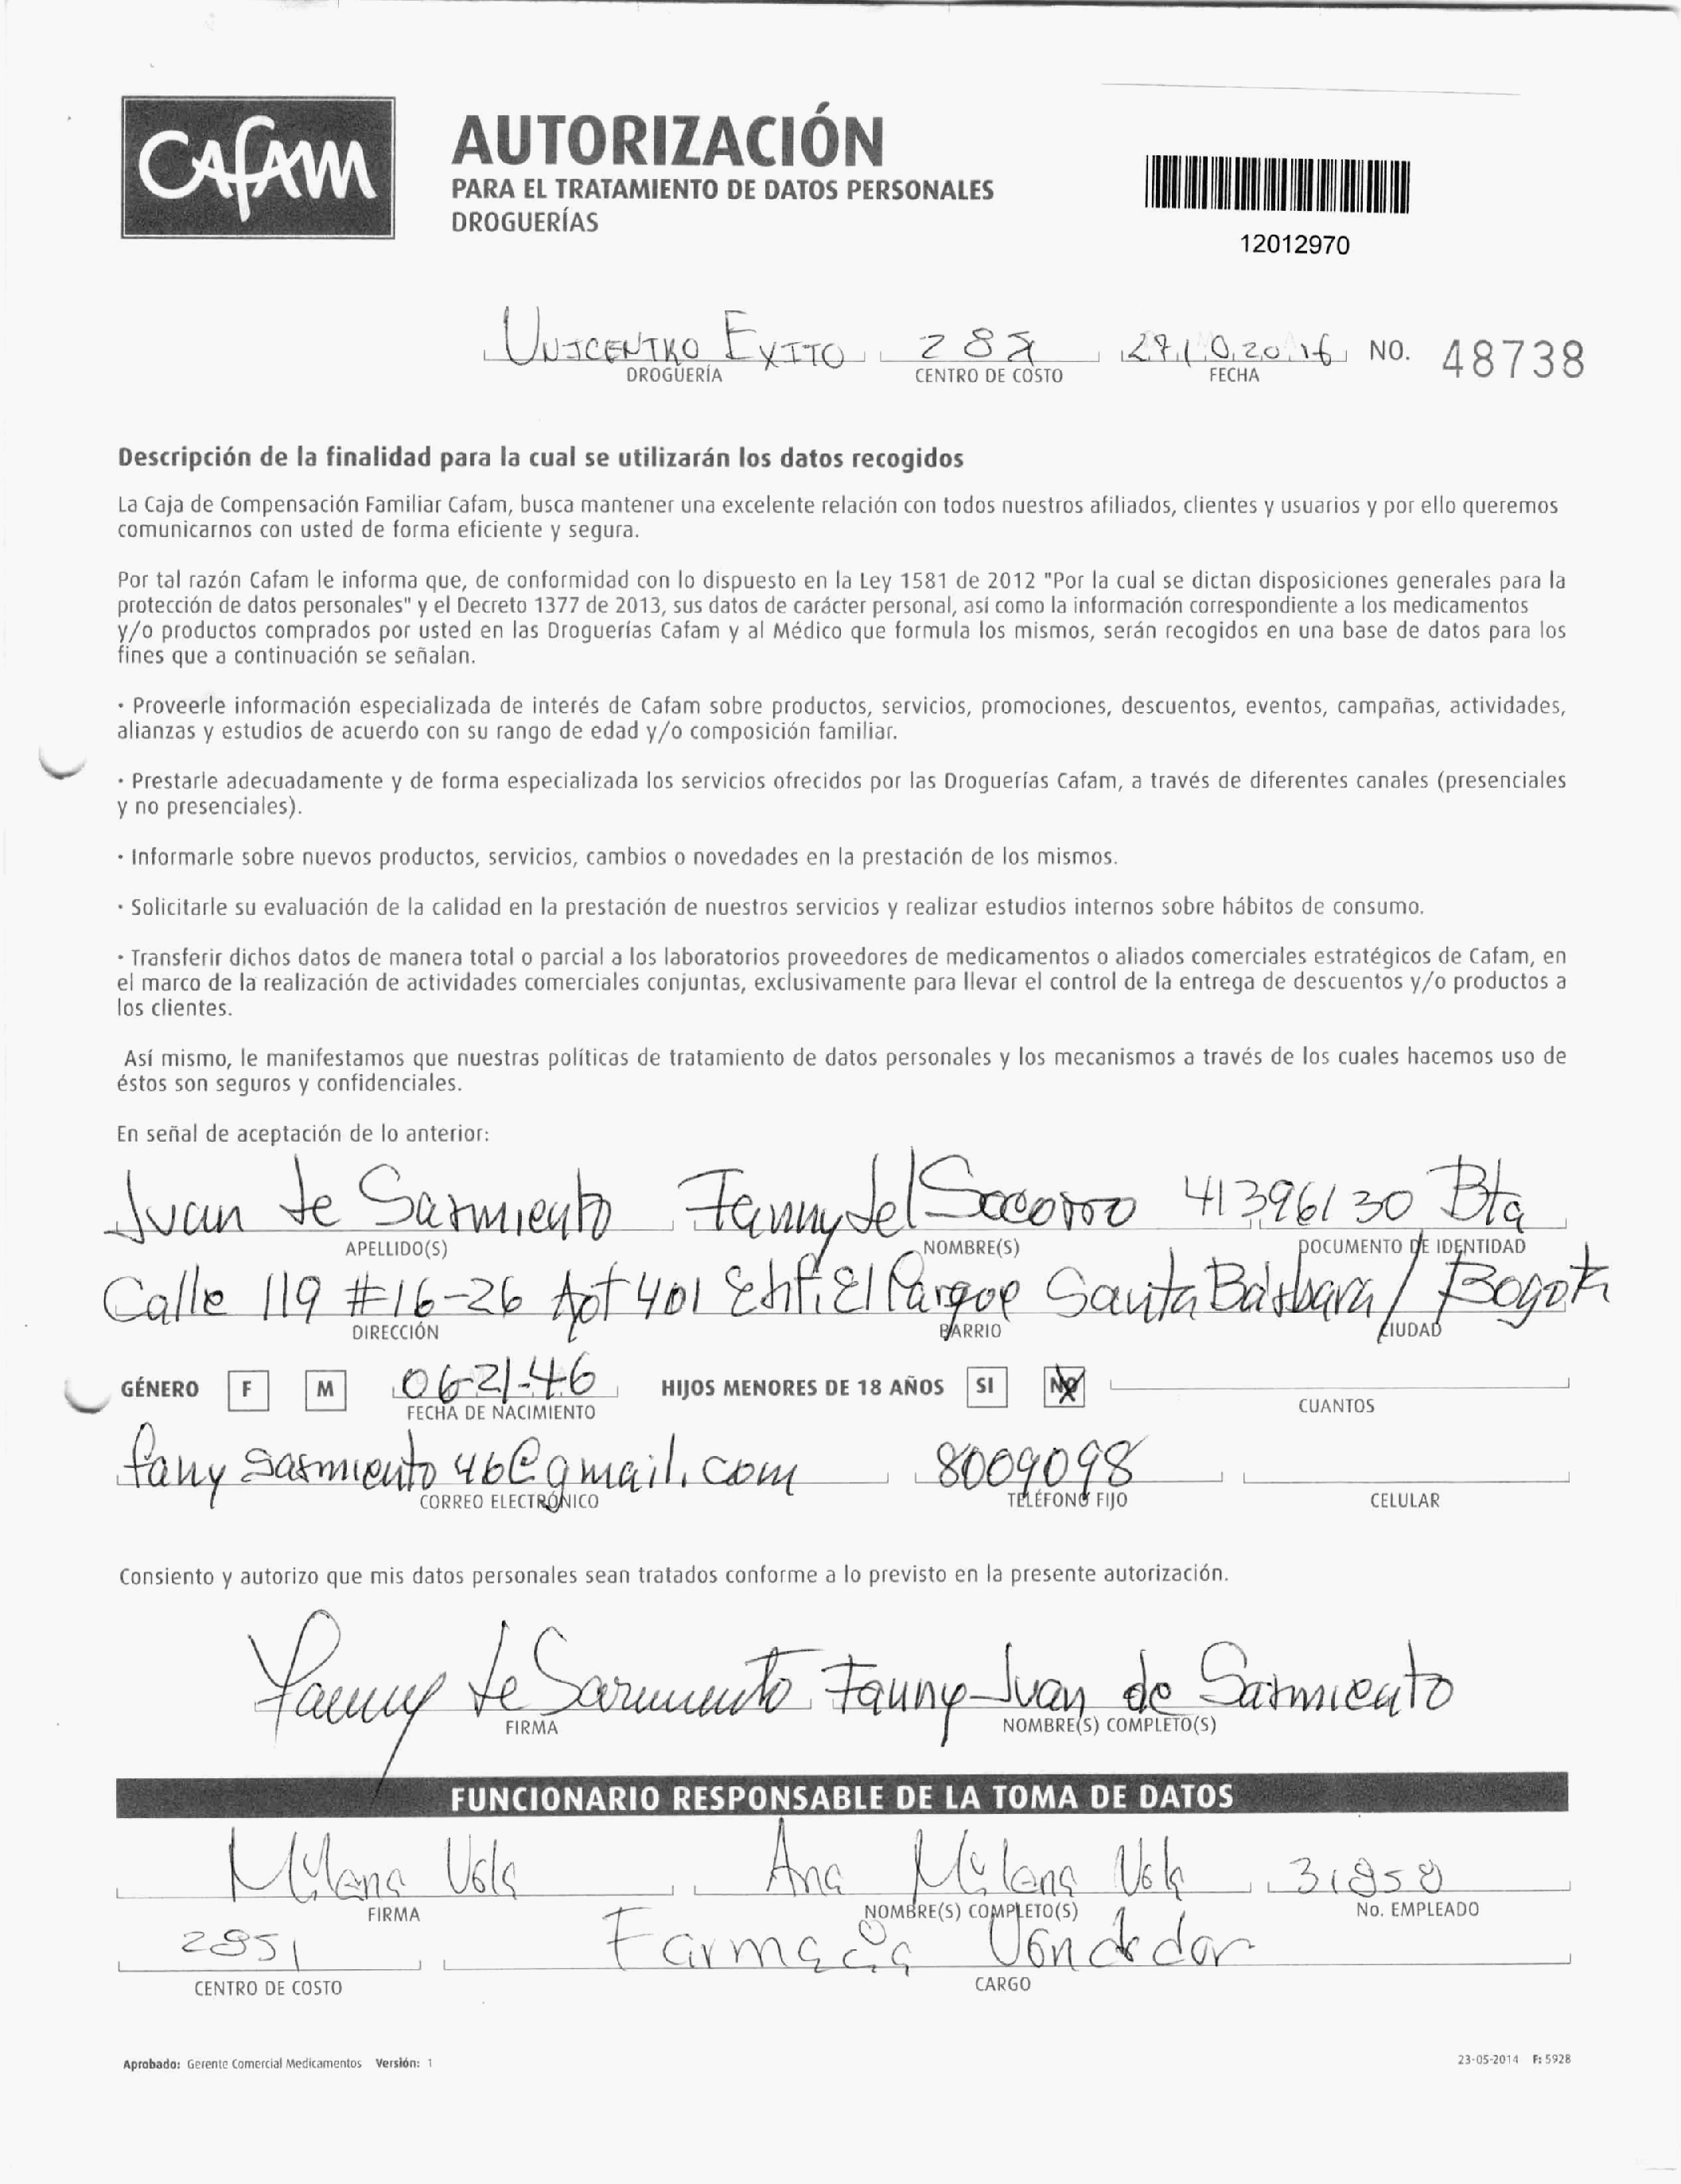 CAFAM
AUTORIZACIÓN
PARA EL TRATAMIENTO DE DATOS PERSONALES
DROGUERÍAS
12012970
UNICENTRO EXITO 27102016 NO. 48738
DROGUERÍA CENTRO DE COSTO FECHA
Descripción de la finalidad para la cual se utilizarán los datos recogidos
La Caja de Compensación Familiar Cafam, busca mantener una excelente relación con todos nuestros afiliados, clientes y usuarios y por ello queremos
comunicarnos con usted de forma eficiente y segura.
Por tal razón Cafam le informa que, de conformidad con lo dispuesto en la Ley 1581 de 2012 "Por la cual se dictan disposiciones generales para la
protección de datos personales" y el Decreto 1377 de 2013, sus datos de carácter personal, así como la información correspondiente a los medicamentos
y/o productos comprados por usted en las Droguerías Cafam y al Médico que formula los mismos, serán recogidos en una base de datos para los
fines que a continuación se señalan.
· Proveerle información especializada de interés de Cafam sobre productos, servicios, promociones, descuentos, eventos, campañas, actividades,
alianzas y estudios de acuerdo con su rango de edad y/o composición familiar.
· Prestarle adecuadamente y de forma especializada los servicios ofrecidos por las Droguerías Cafam, a través de diferentes canales (presenciales
y no presenciales).
· Informarle sobre nuevos productos, servicios, cambios o novedades en la prestación de los mismos.
· Solicitarle su evaluación de la calidad en la prestación de nuestros servicios y realizar estudios internos sobre hábitos de consumo.
· Transferir dichos datos de manera total o parcial a los laboratorios proveedores de medicamentos o aliados comerciales estratégicos de Cafam, en
el marco de la realización de actividades comerciales conjuntas, exclusivamente para llevar el control de la entrega de descuentos y/o productos a
los clientes.
Así mismo, le manifestamos que nuestras políticas de tratamiento de datos personales y los mecanismos a través de los cuales hacemos uso de
éstos son seguros y confidenciales.
En señal de aceptación de lo anterior:
Juan de Sarmiento Fanny del Socorro 41396130 Bta
APELLIDO(S) NOMBRE(S) DOCUMENTO DE IDENTIDAD
Calle 119 #16-26 Apt 401 Edif. El Parque Santa Bárbara / Bogotá
DIRECCIÓN BARRIO CIUDAD
GÉNERO F M 06-21-46 HIJOS MENORES DE 18 AÑOS SI NO
FECHA DE NACIMIENTO CUANTOS
fany sarmiento 46@gmail.com 8009098
CORREO ELECTRÓNICO TELÉFONO FIJO CELULAR
Consiento y autorizo que mis datos personales sean tratados conforme a lo previsto en la presente autorización.
Fanny de Sarmiento Fanny Juan de Sarmiento
FIRMA NOMBRE(S) COMPLETO(S)
FUNCIONARIO RESPONSABLE DE LA TOMA DE DATOS
Milena Ana Milena 31858
FIRMA NOMBRE(S) COMPLETO(S) No. EMPLEADO
2851 Farmacia Vendedor
CENTRO DE COSTO CARGO
Aprobado: Gerente Comercial Medicamentos Versión: 1 23-05-2014 F: 5928